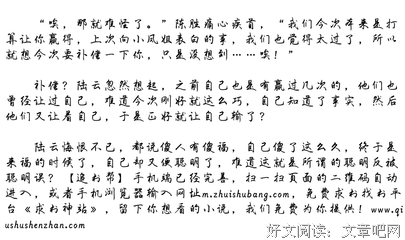 “唉，那就难怪了。”陈胜痛心疾首，“我们今次本来是打
算让你赢得，上次向小凤姐表白的事，我们也觉得太过了，所以
就想今次要补偿一下你，只是没想到……唉！”
补偿？陆云忽然想起，之前自己也是有赢过几次的，他们也
曾经让过自己，难道今次刚好就这么巧，自己知道了事实，然后
他们又让着自己，于是正好就让自己输了？
陆云悔恨不已，都说傻人有傻福，自己傻了这么久，终于是
来福的时候了，自己却又侯聪明了，难道这就是所谓的聪明反被
聪明误？【追书帮】手机端已经完善，扫一扫页面的二维码自动
进入，或者手机浏览器输入网址m.zhuishubang.com，免费求书找书平
台《求书神站》，留下你想看的小说，我们免费为你提供！www.qi
ushushenzhan.com
好文阅读：文章吧网